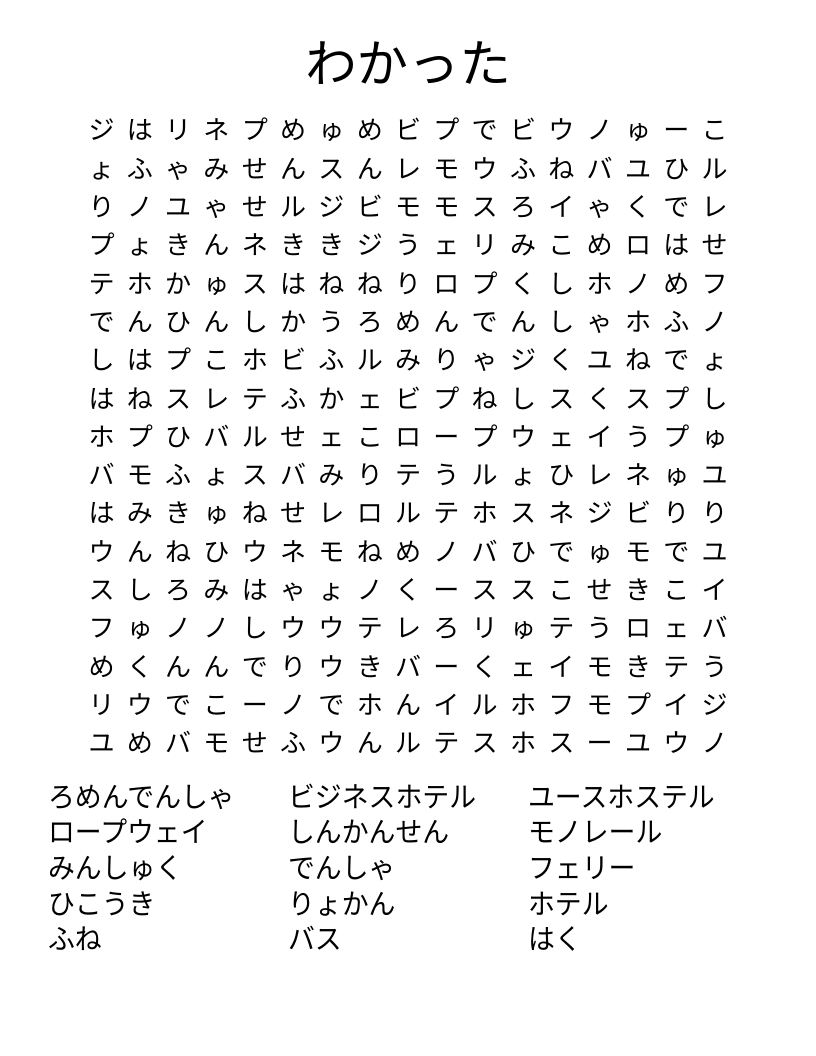 わかった
ジ は リ ネ プ め ゅ め ビ プ で ビ ウ ノ ゅ ー こ
ょ ふ ゃ み せ ん ス ん レ モ ウ ふ ね バ ユ ひ ル
り ノ ユ ゃ せ ル ジ ビ モ モ ス ろ イ ゃ く で レ
プ ょ き ん ネ き き ジ う ェ リ み こ め ロ は せ
テ ホ か ゅ ス は ね ね り ロ プ く し ホ ノ め フ
で ん ひ ん し か う ろ め ん で ん し ゃ ホ ふ ノ
し は プ こ ホ ビ ふ ル み り ゃ ジ く ユ ね で ょ
は ね ス レ テ ふ か ェ ビ プ ね し ス く ス プ し
ホ プ ひ バ ル せ ェ こ ロ ー プ ウ ェ イ う プ ゅ
バ モ ふ ょ ス バ み り テ う ル ょ ひ レ ネ ゅ ユ
は み き ゅ ね せ レ ロ ル テ ホ ス ネ ジ ビ り り
ウ ん ね ひ ウ ネ モ ね め ノ バ ひ で ゅ モ で ユ
ス し ろ み は ゃ ょ ノ く ー ス ス こ せ き こ イ
フ ゅ ノ ノ し ウ ウ テ レ ろ リ ゅ テ う ロ ェ バ
め く ん ん で り ウ き バ ー く ェ イ モ き テ う
リ ウ で こ ー ノ で ホ ん イ ル ホ フ モ プ イ ジ
ユ め バ モ せ ふ ウ ん ル テ ス ホ ス ー ユ ウ ノ
ろめんでんしゃ ビジネスホテル ユースホステル
ロープウェイ しんかんせん モノレール
みんしゅく でんしゃ フェリー
ひこうき りょかん ホテル
ふね バス はく